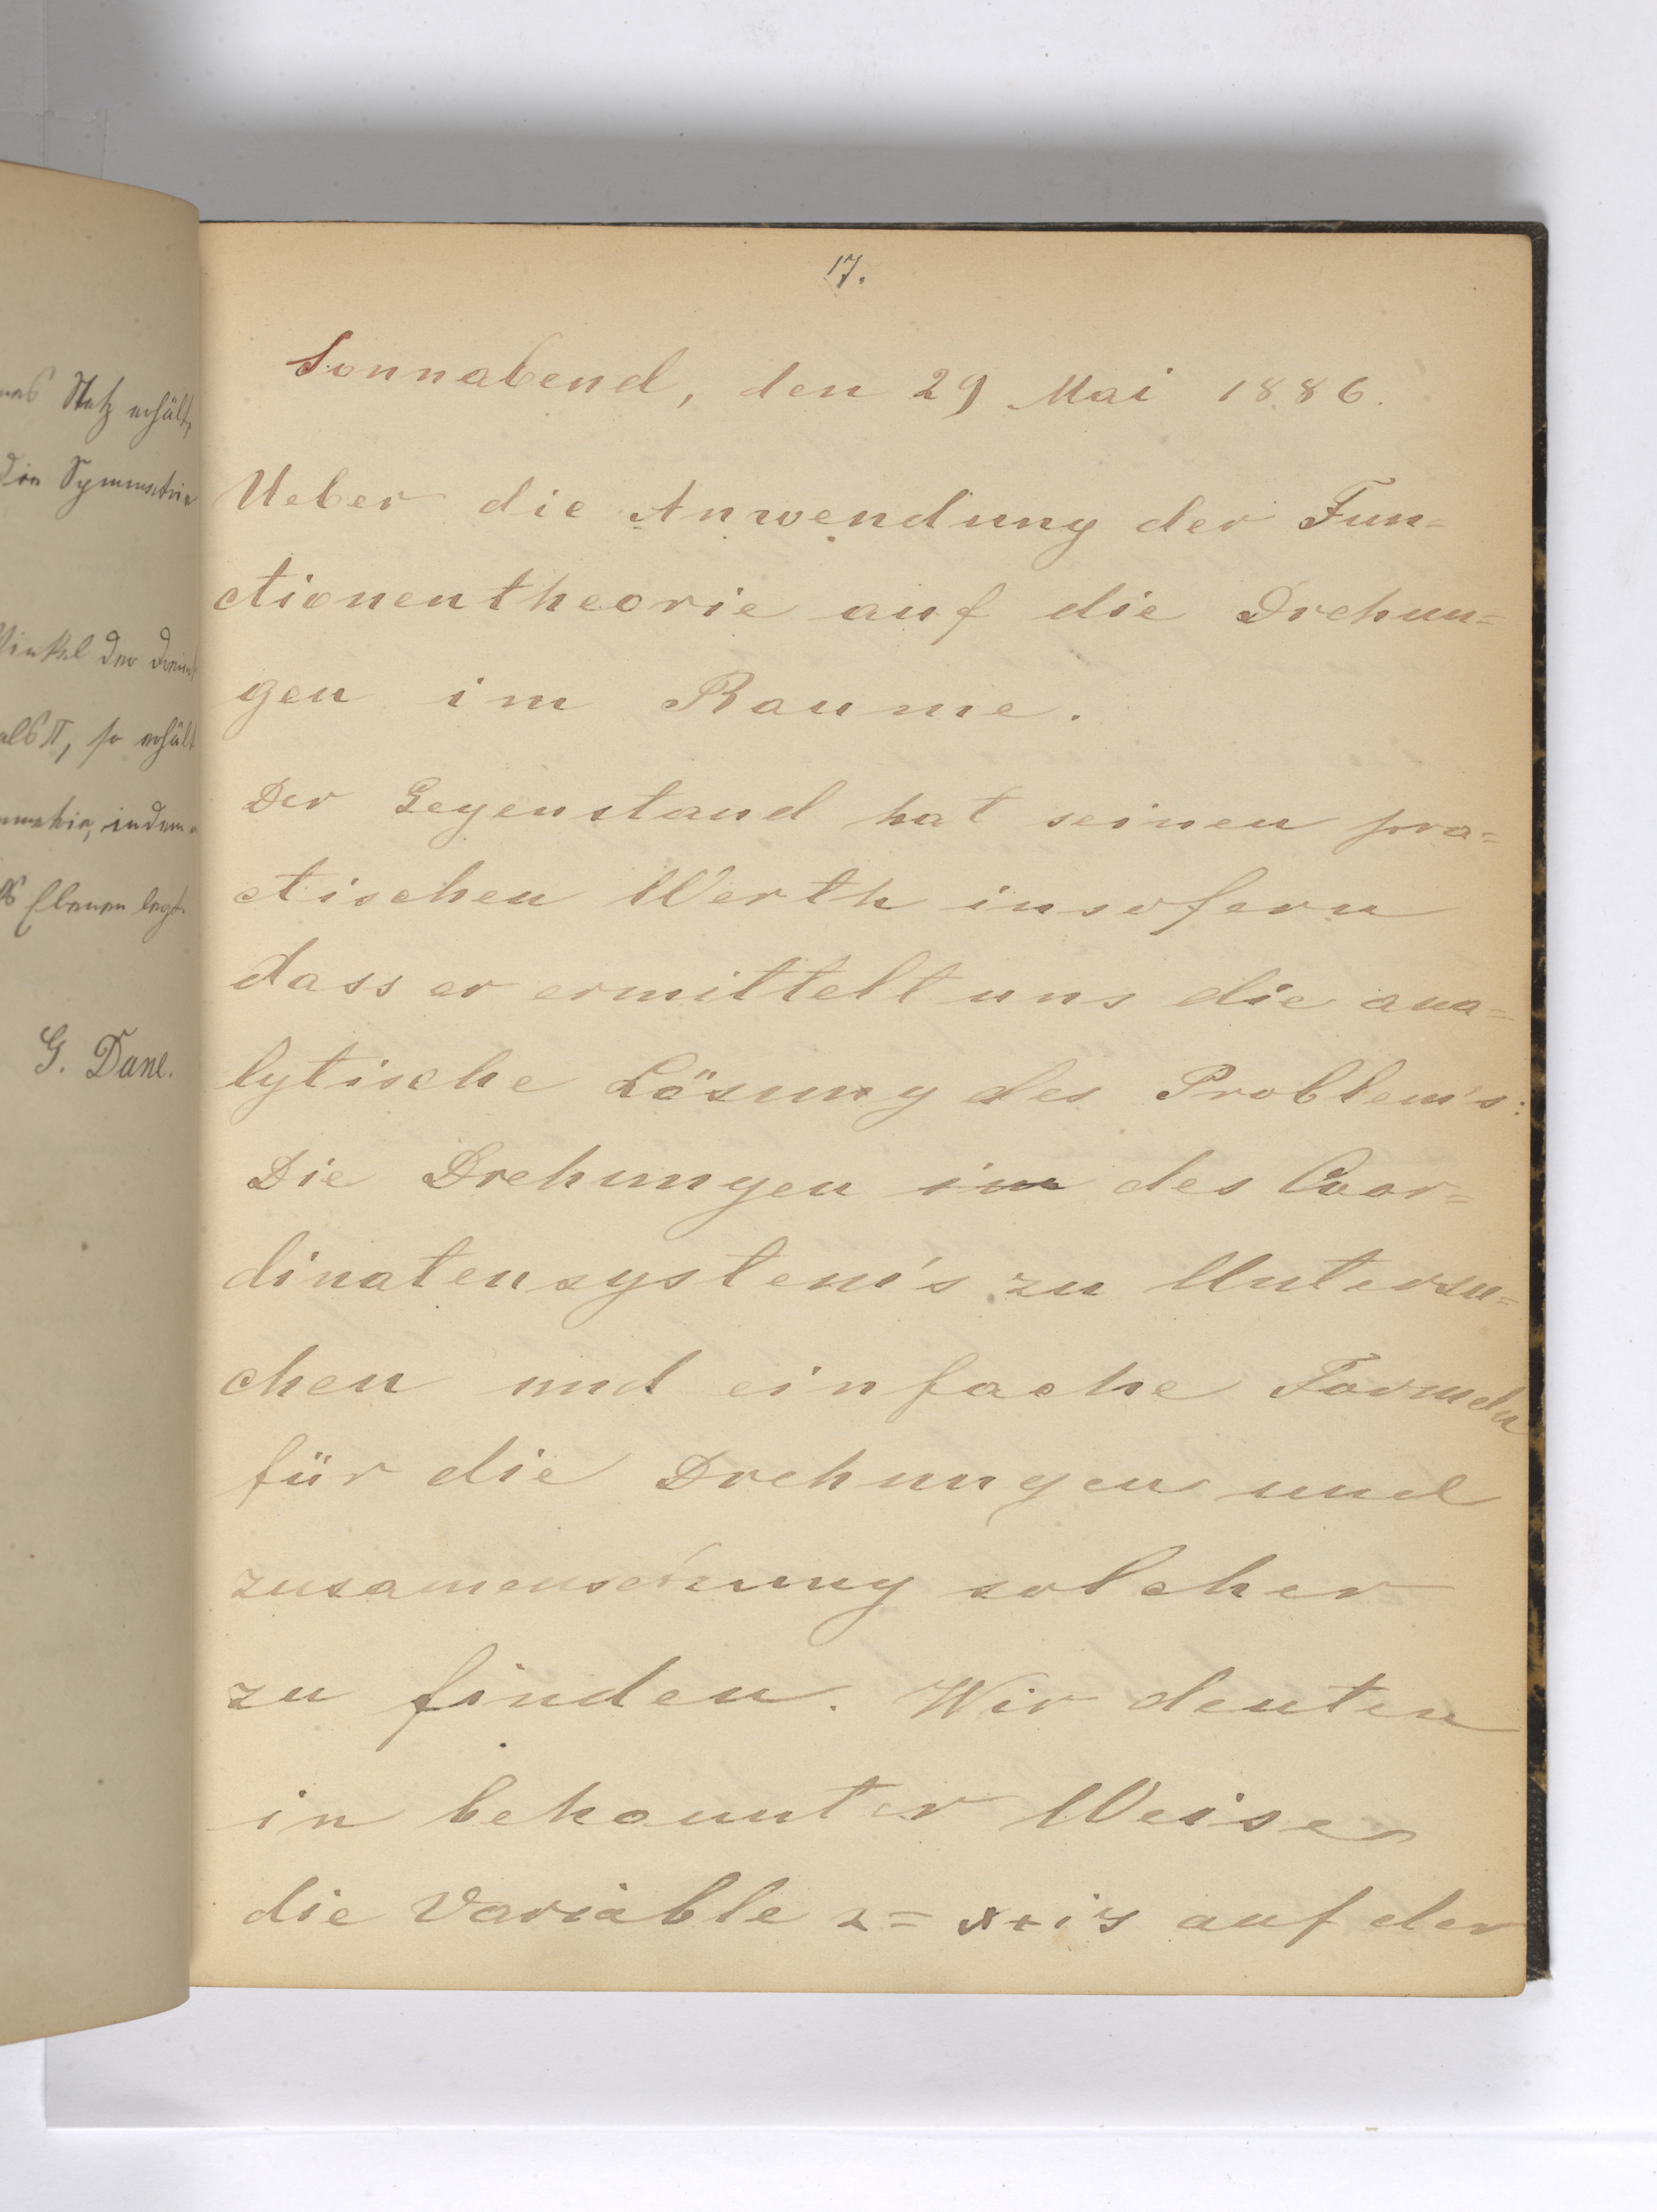 nas Netz erhält,
die Symmetrie
Winkel der Dreiecke
als π, so erhält
indem
Ebenen legt.
G. Dane.
17.
Sonnabend, den 29 Mai 1886.
Ueber die Anwendung der Fun=
ctionentheorie auf die Drehun=
gen im Raume.
Der Gegenstand hat seinen pra=
ctischen Werth insofern
dass er ermittelt uns die ana=
lytische Lösung des Problem's:
Die Drehungen im des Coor=
dinatensystem's zu Untersu=
chen und einfache Formeln
für die Drehungen und
zusamensetzung solcher
zu finden. Wir deuten
in bekannter Weise
die Variable z = x+iy auf der